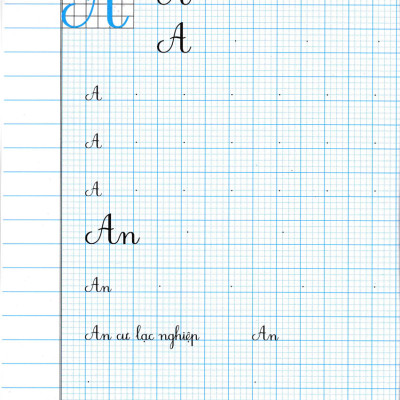 A A
A
A
A
A
An
An
An cư lạc nghiệp An